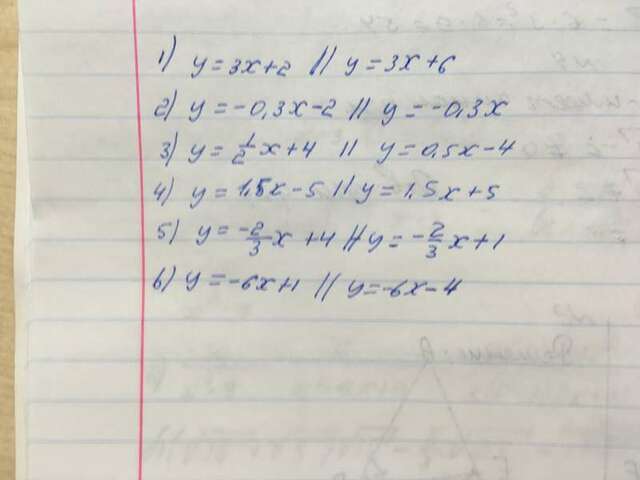 1) y=3x+2 // y=3x+6
2) y=-0,3x-2 // y=-0,3x
3) y=1/2x+4 // y=0,5x-4
4) y=1,5x-5 // y=1,5x+5
5) y=-2/3x+4 // y=-2/3x+1
6) y=-6x+1 // y=-6x-4